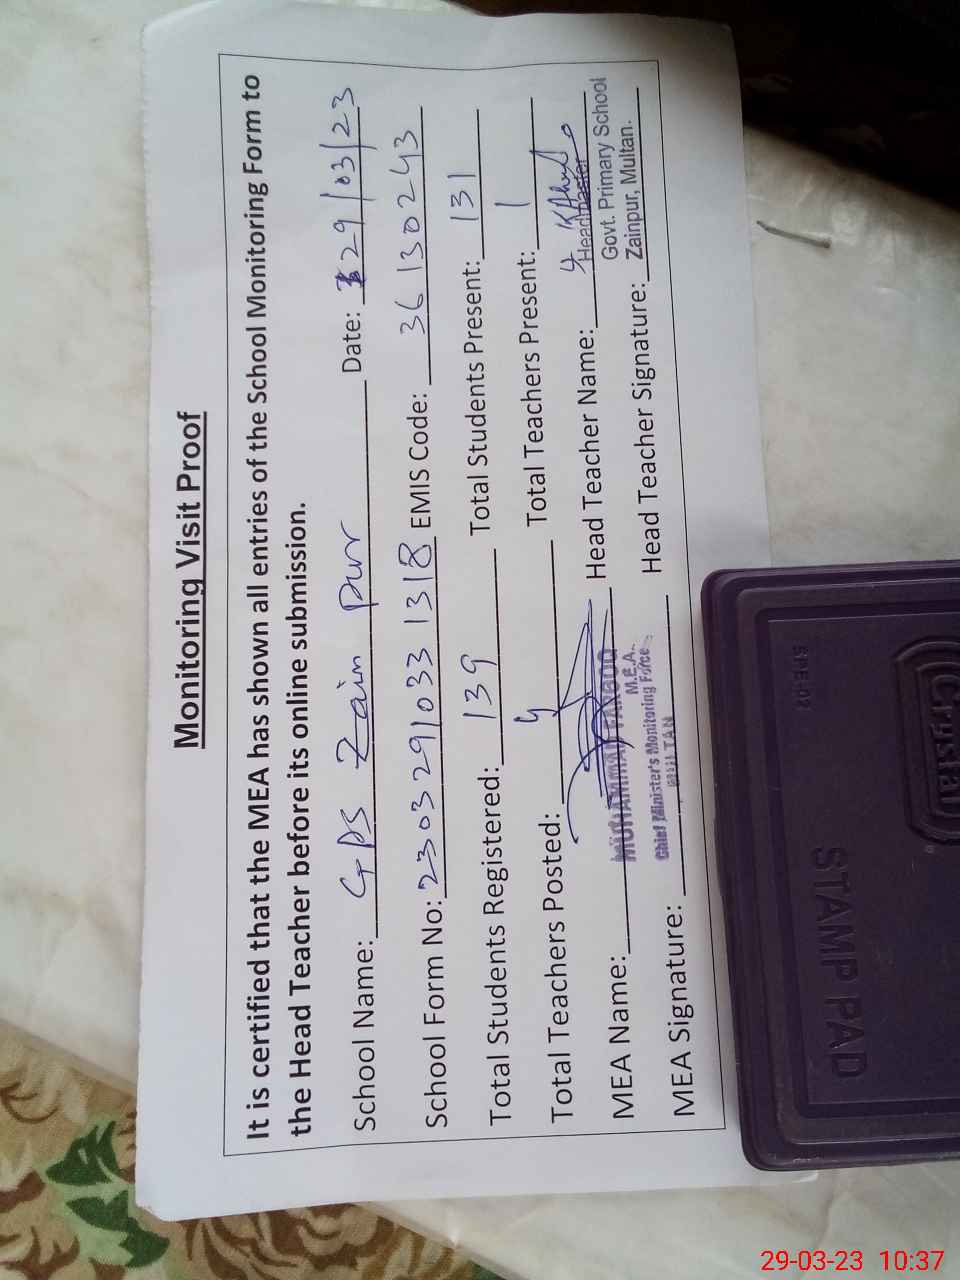 Monitoring Visit Proof
It is certified that the MEA has shown all entries of the School Monitoring Form to
the Head Teacher before its online submission.
School Name: GPS Zain pur Date: 29/03/23
School Form No: 23032910331318 EMIS Code: 36130243
Total Students Registered: 139 Total Students Present: 131
Total Teachers Posted: 4 Total Teachers Present: 1
MEA Name: MUHAMMAD FAROOQ Head Teacher Name: Headmaster
M.E.A. Govt. Primary School
Chief Minister's Monitoring Force
MEA Signature: MULTAN Head Teacher Signature: Zainpur, Multan.
SPE-02
Crystal
STAMP PAD
29-03-23 10:37